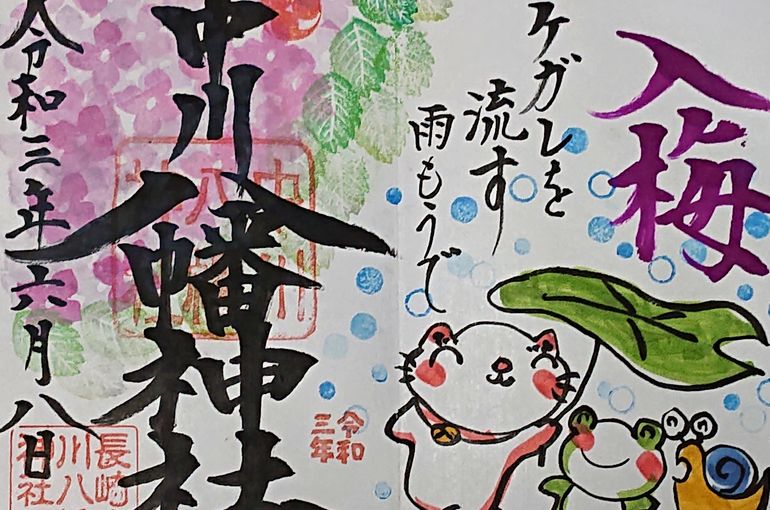 入梅
ケガレを
流す
雨もうで
令和
三年
中川八幡神社
令和三年六月八日
長崎
川八
神社